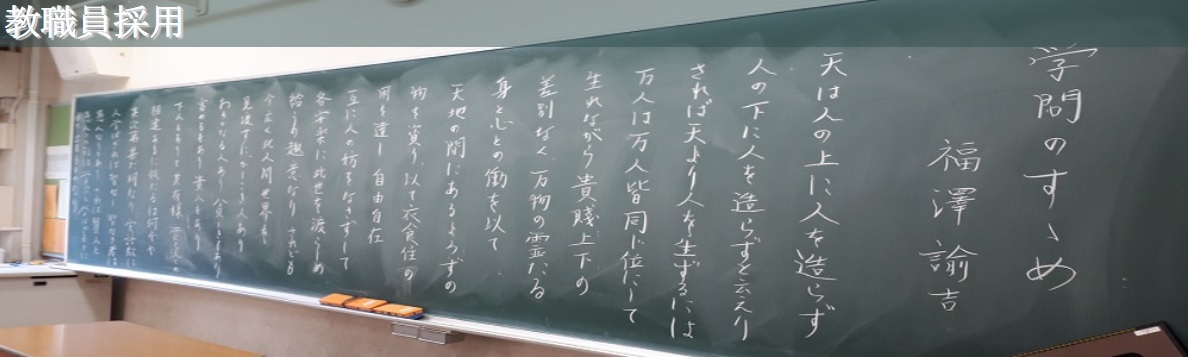 教職員採用
学問のすゝめ
福澤諭吉
天は人の上に人を造らず
人の下に人を造らずと云えり
されば天より人を生ずるには
万人は万人皆同じ位にして
生れながら貴賤上下の
差別なく万物の霊たる
身と心との働を以て
天地の間にあるよろずの
物を資り以て衣食住の
用を達し自由自在
互に人の妨をなさずして
各安楽に此世を渡らしめ
給うの趣意なりされども
今広く此人間世界を
見渡すにかしこき人あり
おろかなる人あり貧しきもあり
富めるもあり貴人もあり
下人もありて其有様雲泥の
相違あるに似たるは何ぞや